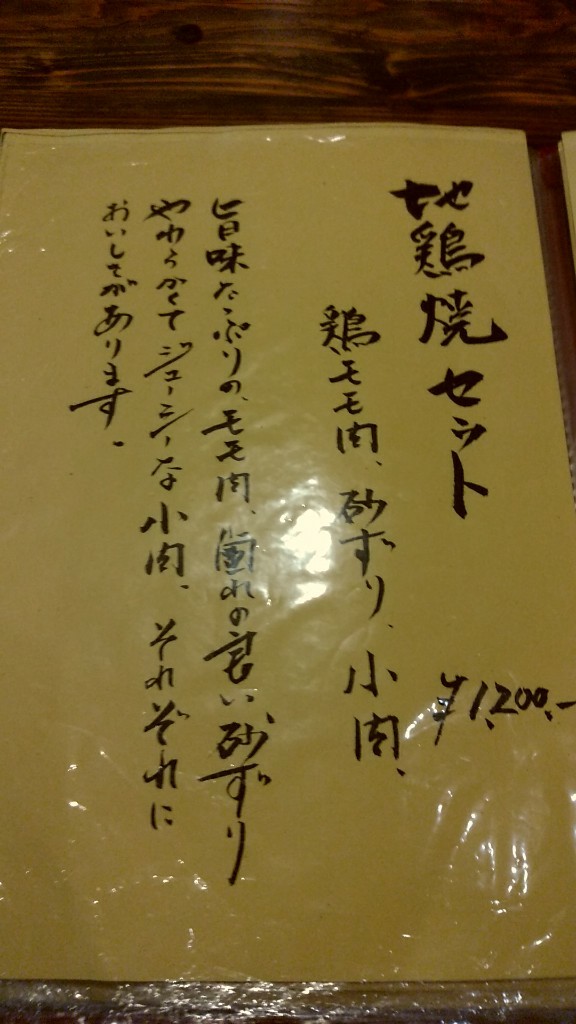 地鶏焼セット
¥1,200.-
鶏モモ肉、砂ずり、小肉、
旨味たっぷりの、モモ肉、歯切れの良い砂ずり
やわらかくてジューシーな小肉、それぞれに
おいしさがあります。